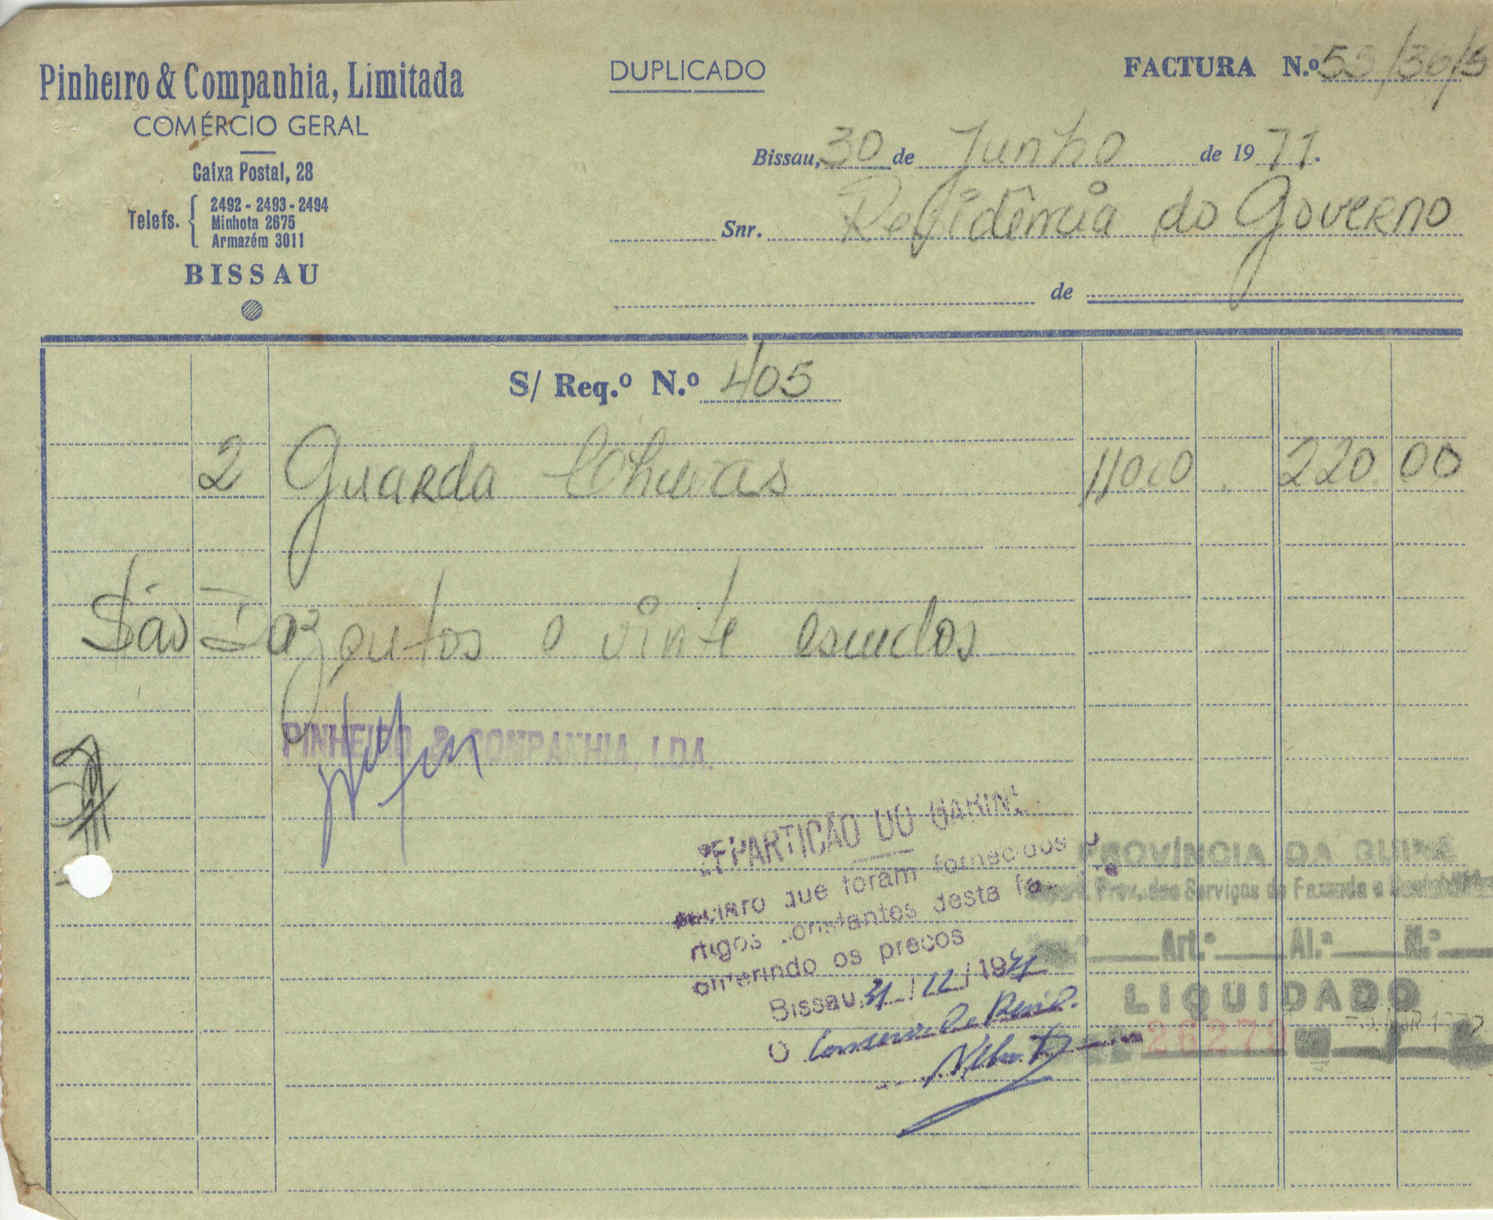 Pinheiro & Companhia, Limitada
COMÉRCIO GERAL
Caixa Postal, 28
Telefs. 2492 - 2493 - 2494
Minhota 2675
Armazém 3011
BISSAU
DUPLICADO
FACTURA N.º 53/36/5
Bissau, 30 de Junho de 1971.
Snr. Residência do Governo
de
S/ Req.º N.º 405
2 Guarda Chuvas 110.00 220.00
São Duzentos e vinte escudos
PINHEIRO & COMPANHIA, LDA.
REPARTIÇÃO DO GABIN
que foram fornecidos
constantes desta
os preços
Bissau, 31/12/1971
O
PROVÍNCIA DA GUINÉ
Prov. dos Serviços de Fazenda e
Art.º Al.ª N.º
LIQUIDADO
26279